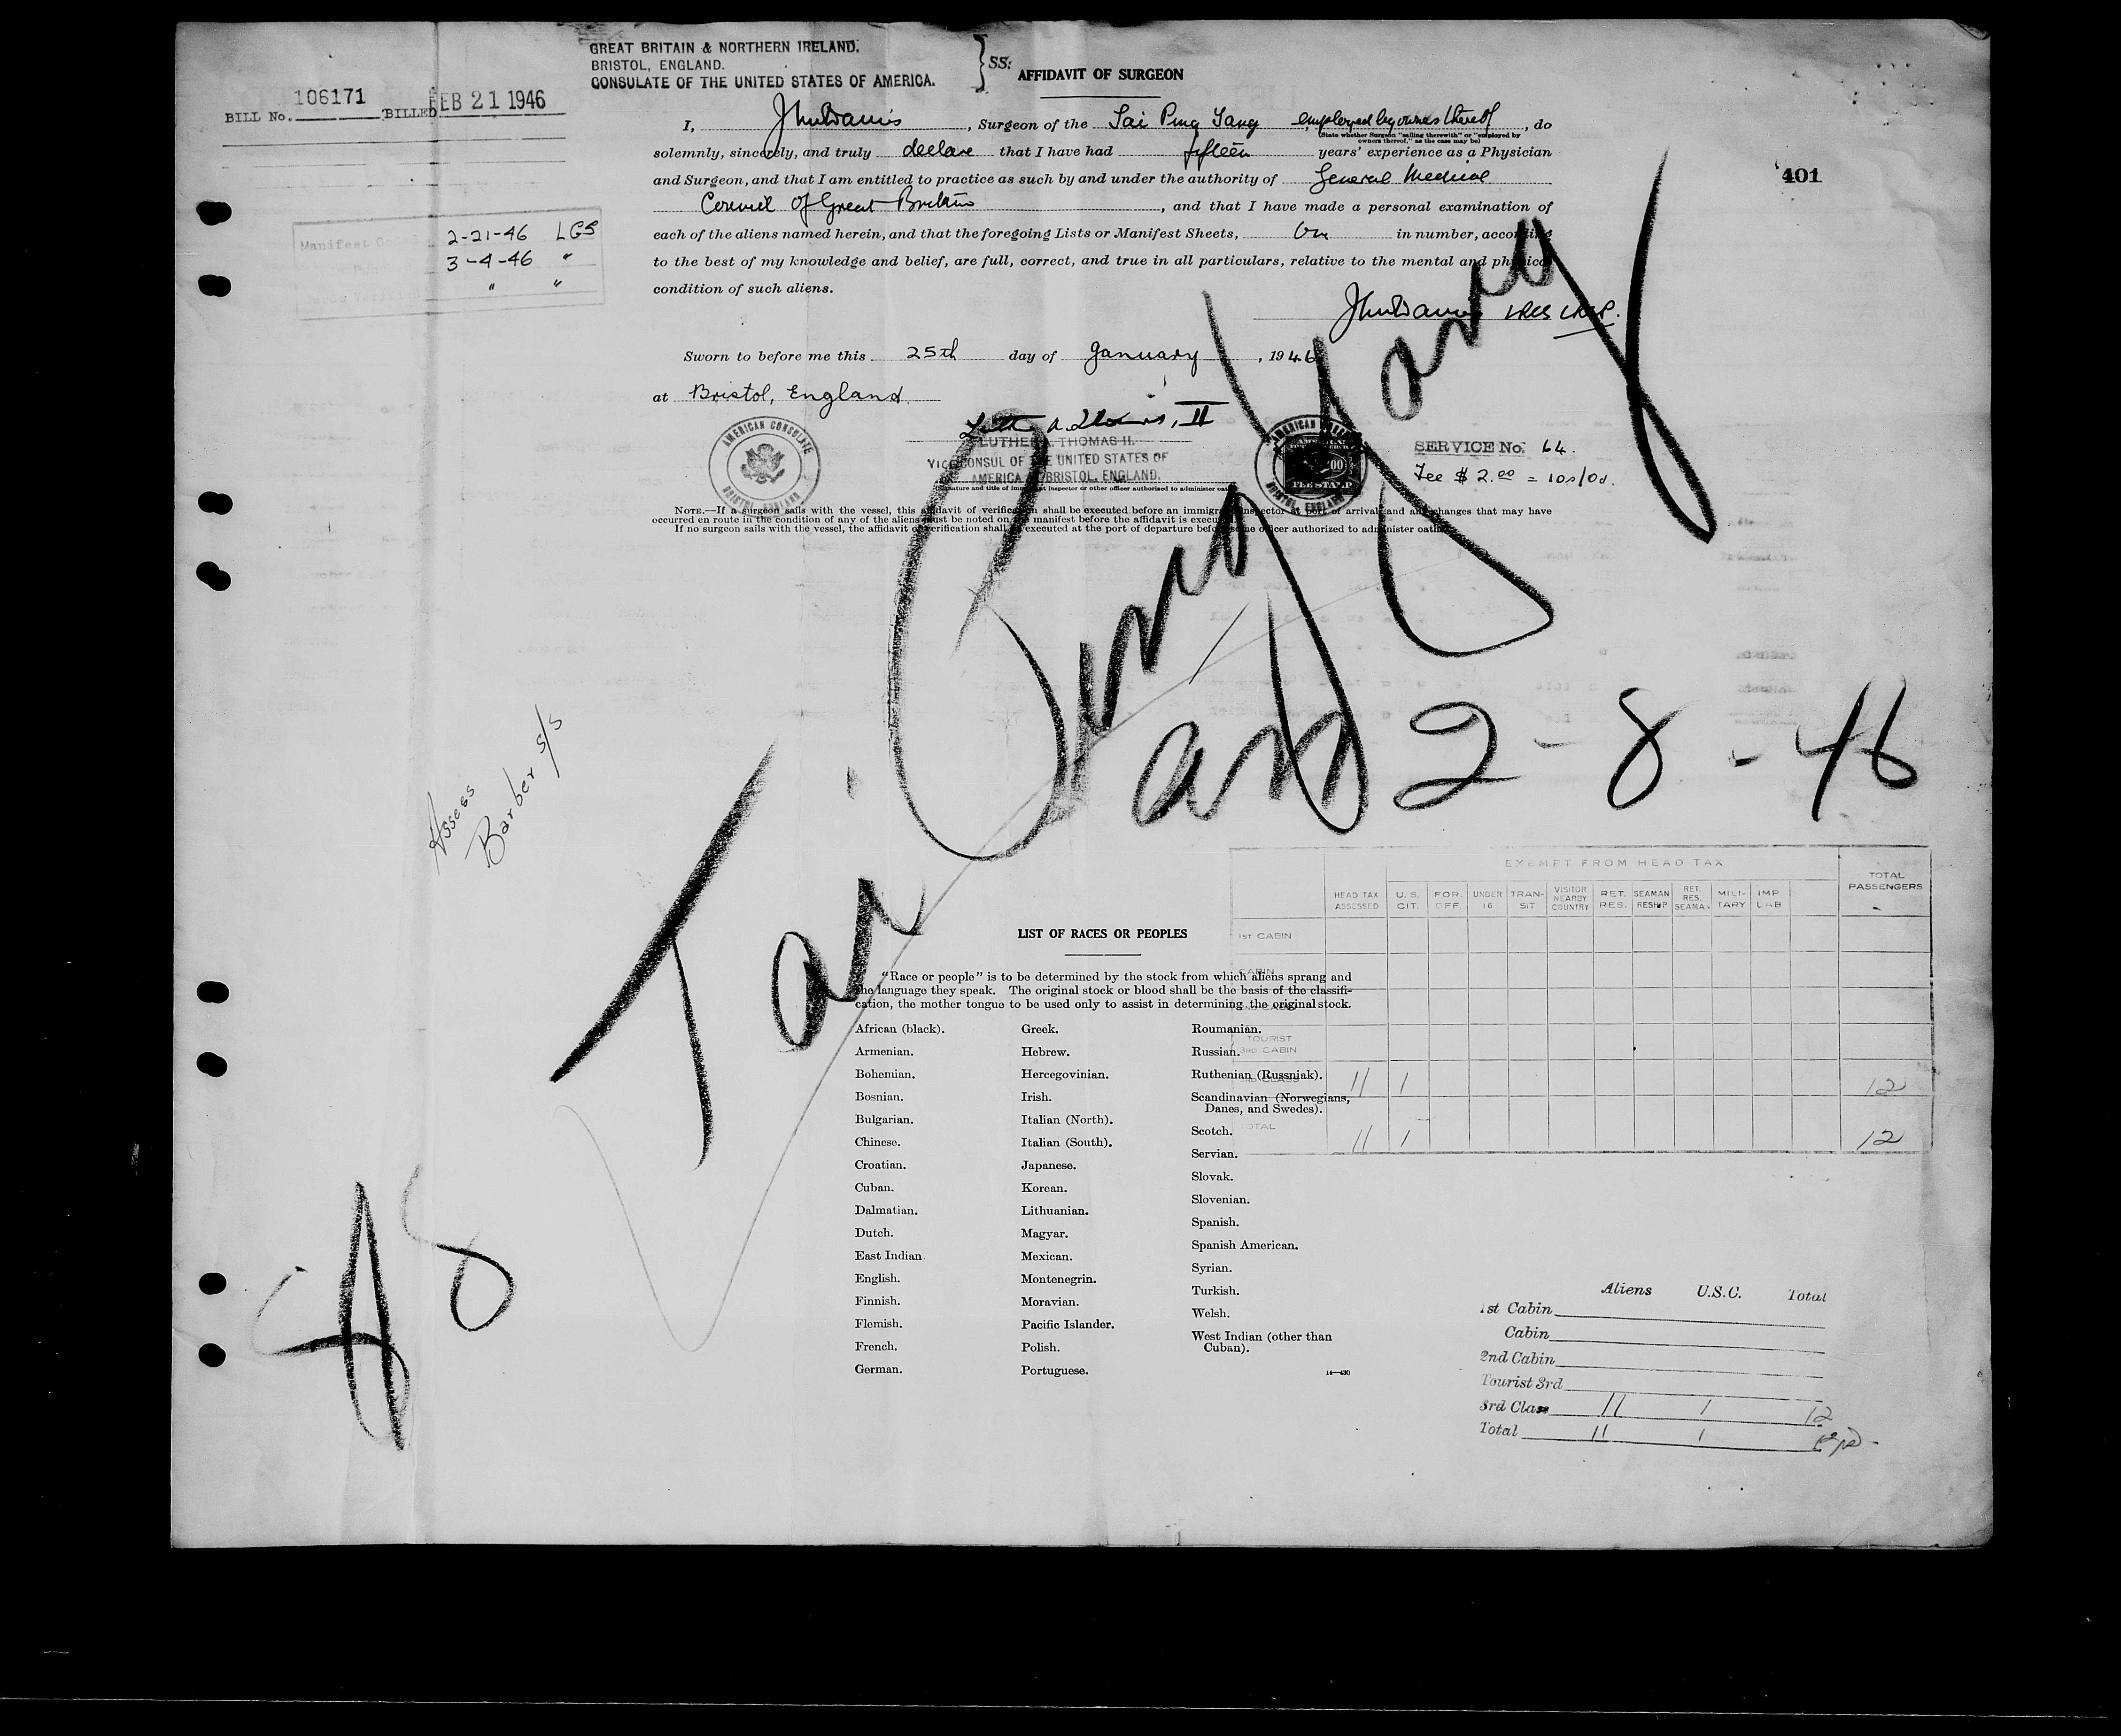 GREAT BRITAIN & NORTHERN IRELAND.
BRISTOL, ENGLAND.
CONSULATE OF THE UNITED STATES OF AMERICA.
SS:
AFFIDAVIT OF SURGEON
BILL No. 106171 BILLED FEB 21 1946
I, , Surgeon of the Tai Ping Yang employed by owners thereof, do
(State whether Surgeon "sailing therewith" or "employed by
owners thereof," as the case may be)
solemnly, sincerely, and truly declare that I have had fifteen years' experience as a Physician
and Surgeon, and that I am entitled to practice as such by and under the authority of General Medical
Council of Great Britain, and that I have made a personal examination of
each of the aliens named herein, and that the foregoing Lists or Manifest Sheets, One in number, according
to the best of my knowledge and belief, are full, correct, and true in all particulars, relative to the mental and physical
condition of such aliens.
401
Manifest
2-21-46 LGS
3-4-46 "
" "
Verified
Sworn to before me this 25th day of January, 1946
at Bristol, England
Luther A. Thomas, II
LUTHER A. THOMAS II.
VICE CONSUL OF THE UNITED STATES OF
AMERICA AT BRISTOL, ENGLAND.
(Signature and title of immigrant inspector or other officer authorised to administer oaths)
AMERICAN CONSULATE
BRISTOL, ENGLAND
AMERICAN CONSULATE
BRISTOL, ENGLAND
FEE STAMP
SERVICE No. 64.
Fee $ 2.00 = 10s/0d.
NOTE.—If a surgeon sails with the vessel, this affidavit of verification shall be executed before an immigrant inspector at port of arrival and any changes that may have
occurred en route in the condition of any of the aliens must be noted on the manifest before the affidavit is executed.
If no surgeon sails with the vessel, the affidavit of verification shall be executed at the port of departure before some officer authorized to administer oaths.
Tai Ping Yang
arr 2-8-46
Assess
Barber S/S
48
EXEMPT FROM HEAD TAX
HEAD TAX ASSESSED U.S. CIT. FOR. OFF. UNDER 16 TRAN-SIT VISITOR NEARBY COUNTRY RET. RES. SEAMAN RESHIP RET. RES. SEAMAN MILI-TARY IMP LAB TOTAL PASSENGERS
1ST CABIN
CABIN
2ND CABIN
TOURIST
3RD CABIN
3RD CLASS 11 1 12
TOTAL 11 1 12
LIST OF RACES OR PEOPLES
"Race or people" is to be determined by the stock from which aliens sprang and
the language they speak. The original stock or blood shall be the basis of the classifi-
cation, the mother tongue to be used only to assist in determining the original stock.
African (black).
Armenian.
Bohemian.
Bosnian.
Bulgarian.
Chinese.
Croatian.
Cuban.
Dalmatian.
Dutch.
East Indian.
English.
Finnish.
Flemish.
French.
German.
Greek.
Hebrew.
Hercegovinian.
Irish.
Italian (North).
Italian (South).
Japanese.
Korean.
Lithuanian.
Magyar.
Mexican.
Montenegrin.
Moravian.
Pacific Islander.
Polish.
Portuguese.
Roumanian.
Russian.
Ruthenian (Russniak).
Scandinavian (Norwegians,
Danes, and Swedes).
Scotch.
Servian.
Slovak.
Slovenian.
Spanish.
Spanish American.
Syrian.
Turkish.
Welsh.
West Indian (other than
Cuban).
14—430
Aliens U.S.C. Total
1st Cabin
Cabin
2nd Cabin
Tourist 3rd
3rd Class 11 1 12
Total 11 1